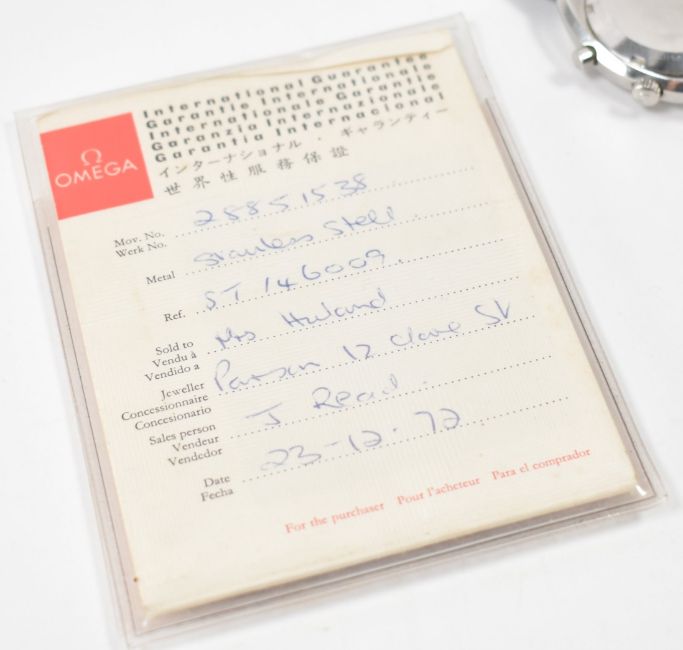 Ω
OMEGA
International Guarantee
Garantie Internationale
Internationale Garantie
Garanzia Internazionale
Garantía Internacional
インターナショナル・ギャランティー
世界性服務保證
Mov. No. 25851538
Werk No.
Metal Stainless Steel
Ref. ST 146009.
Sold to Mrs
Vendu à
Vendido a
Jeweller 12 Clare St
Concessionnaire
Concesionario
Sales person J Read.
Vendeur
Vendedor
Date 23-12-72
Fecha
For the purchaser Pour l'acheteur Para el comprador